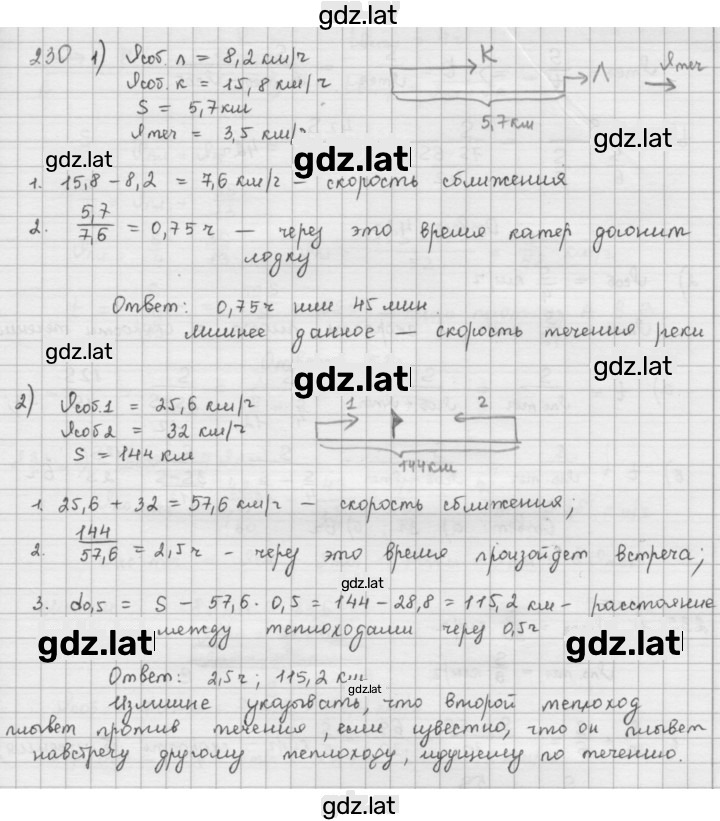 gdz.lat
230 1) Vсоб. л = 8,2 км/ч
Vсоб. к = 15,8 км/ч
S = 5,7 км
Vтеч = 3,5 км/ч
К
Л
Vтеч
5,7 км
gdz.lat
gdz.lat
gdz.lat
1. 15,8 – 8,2 = 7,6 км/ч – скорость сближения
2. 5,7/7,6 = 0,75 ч – через это время катер догонит
лодку
Ответ: 0,75 ч или 45 мин.
лишнее данное – скорость течения реки
gdz.lat
gdz.lat
gdz.lat
2) Vсоб.1 = 25,6 км/ч
Vсоб2 = 32 км/ч
S = 144 км
1
2
144 км
1. 25,6 + 32 = 57,6 км/ч – скорость сближения;
2. 144/57,6 = 2,5 ч – через это время произойдет встреча;
gdz.lat
3. d0,5 = S – 57,6 · 0,5 = 144 – 28,8 = 115,2 км – расстояние
между теплоходами через 0,5 ч
gdz.lat
gdz.lat
Ответ: 2,5 ч; 115,2 км
gdz.lat
Излишне указывать, что второй теплоход
плывет против течения, если известно, что он плывет
навстречу другому теплоходу, идущему по течению.
gdz.lat